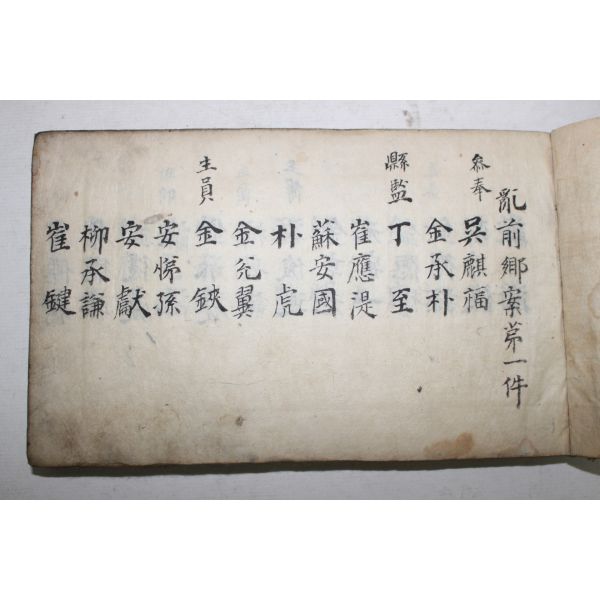 亂前鄕案第一件
參奉 吳麒福
金承朴
縣監 丁至
崔應湜
蘇安國
朴虎
金允翼
生員 金鋏
安悌孫
安獻
柳承謙
崔鍵